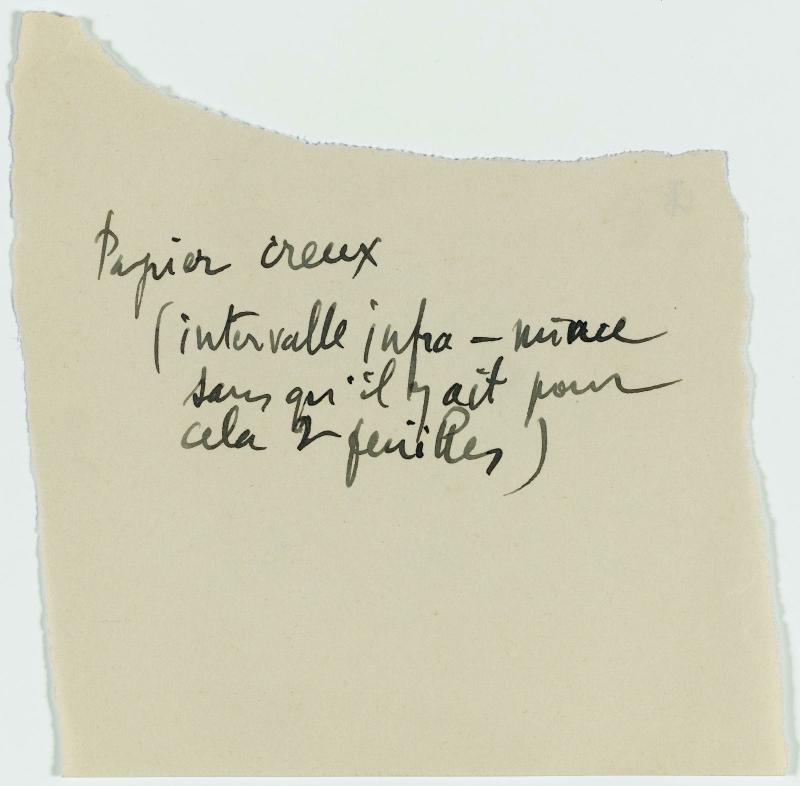 Papier creux
(intervalle infra - mince
sans qu'il y ait pour
cela 2 feuilles)